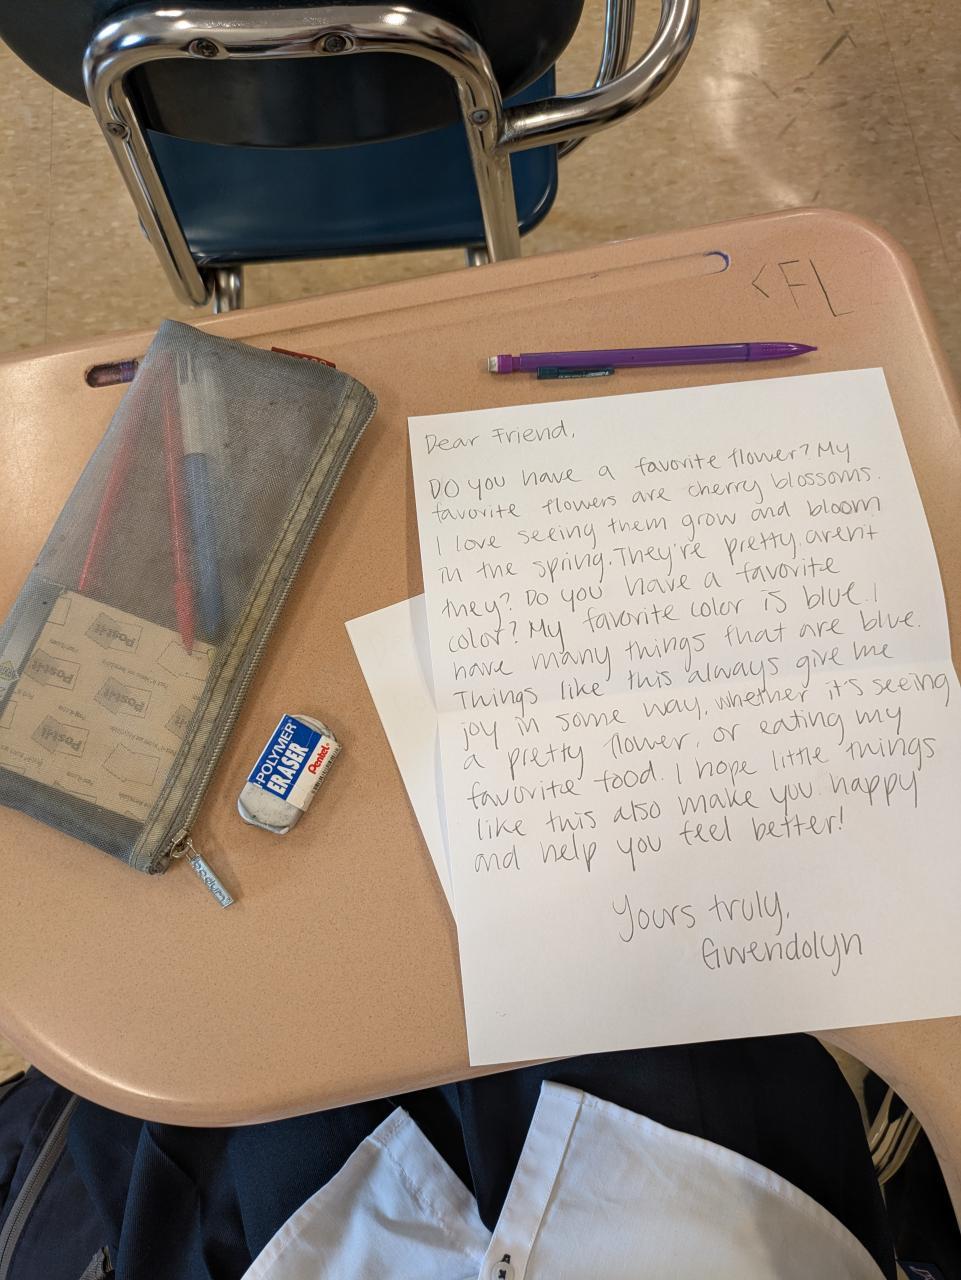 <FL
Dear Friend,
Do you have a favorite flower? My
favorite flowers are cherry blossoms.
I love seeing them grow and bloom
in the spring. They're pretty, aren't
they? Do you have a favorite
color? My favorite color is blue. I
have many things that are blue.
Things like this always give me
joy in some way, whether it's seeing
a pretty flower, or eating my
favorite food. I hope little things
like this also make you happy
and help you feel better!
Yours truly,
Gwendolyn
POLYMER
ERASER
Pentel
Post-it
Post-it
Post-it
Post-it